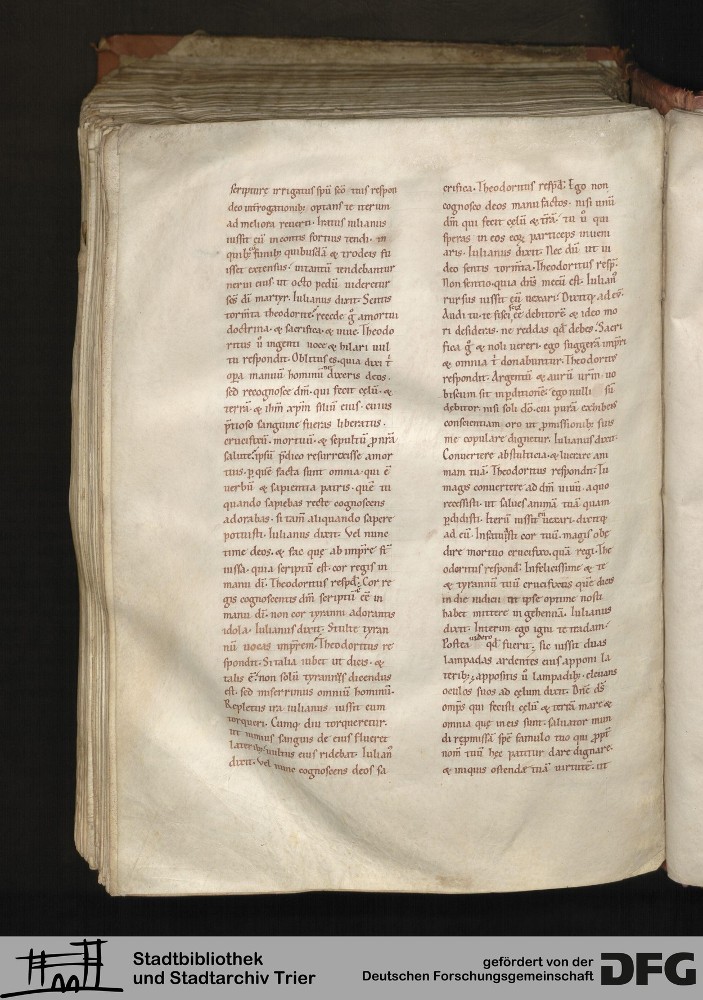 scripturę irrigatus spū scō tuis respon
deo int̄rogationib; optans te iterum
ad meliora reuerti. Iratus iulianus
iussit eū in contis fortius tendi. in
quib; funib; quibusdā & trocleis fu
isset extensus. intantū tendebantur
nerui eius ut octo pedū uideretur
scs̄ dī martyr. Iulianus dixit. Sentis
torm̄ta theodorite. recede g̊ amortui
doctrina. & sacrifica. & uiue. Theodo
ritus ū ingenti uoce & hilari uul
tu respondit. Oblitus es. quia dixi t̄
opa manuū hominū ne dixeris deos.
sed recognosce dm̄. qui fecit celū. &
terrā. & ihm̄ xpm̄ filiū eius. cuius
p̄tioso sanguine fueras liberatus.
crucifixū. mortuū. & sepultū p nrā
salute. ipsū p̄dico resurrexisse amor
tuis. p quē facta sunt omnia. qui ē
uerbū & sapientia patris. quē tu
quando sapiebas recte cognoscens
adorabas. si tam̄ aliquando sapere
potuisti. Iulianus dixit. Vel nunc
time deos. & fac que ab imp̄re st̄
iussa. quia scriptū est. cor regis in
manu dī. Theodoritus resp̄d. Cor re
gis cognoscentis dm̄ scriptū ē eē in
manu dī. non cor tyranni adorantis
idola. Iulianus dixit. Stulte tyran
nū uocas imp̄rem. Theodoritus re
spondit. Si talia iubet ut dicis. &
talis ē. non solū tyrannus dicendus
est. sed miserrimus omniū hominū.
Repletus ira iulianus iussit eum
torqueri. Cumq; diu torqueretur.
ut nimius sanguis de eius flueret
laterib; uultus eius ridebat. Iulian
dixit. Vel nunc cognoscens deos sa
crifica. Theodoritus resp̄d. Ego non
cognosco deos manufactos. nisi unū
dm̄ qui fecit celū & t̄rā. tu ū qui
speras in eos eoȝ particeps inueni
aris. Iulianus dixit. Nec dū ut ui
deo sentis torm̄ta. Theodoritus resp̄.
Non sentio. quia dns̄ mecū est. Iulian
rursus iussit eū uexari. Dixitq; ad eū.
Audi tu. te fisci scio eē debitorē & ideo mo
ri desideras. ne reddas qd̄ debes. Sacri
fica g̊ & noli uereri. ego suggerā imp̄ri
& omnia t̄ donabuntur. Theodorits
respondit. Argentū & aurū ur̄m. uo
biscum sit inp̄ditionē. ego nulli sū
debitor. nisi soli dō. cui purā exhibens
conscientiam oro ut p̄missionib; suis
me copulare dignetur. Iulianus dixit.
Conuertere abstulticia. & lucrare ani
mam tuā. Theodoritus respondit. Tu
magis conuertere ad dm̄ uiuū. aquo
recessisti. ut salues animā tuā quam
p̄didisti. Iterū iussit eū uexari. dixitq;
ad eū. Infelix ē cor tuū. magis obę
dire mortuo crucifixo. quā regi. The
odoritus respond. Infelicissime & te
& tyrannū tuū crucifixus quē dicis
in die iudicii ut ipse optime nosti
habet mittere in gehennā. Iulianus
dixit. Interim ego igni te tradam.
Postea uidero qd̄ fuerit. sic iussit duas
lampadas ardentes eius apponi la
terib; appositis ū lampadib; eleuans
oculos suos ad celum dixit. Dnē dš
omp̄s qui fecisti celū & terrā mare &
omnia que in eis sunt. saluator mun
di repmissā spē famulo tuo qui ppt̄
nom̄ tuū hęc patitur dare dignare.
& iniquis ostende tuā uirtutē. ut
Stadtbibliothek
und Stadtarchiv Trier
gefördert von der
Deutschen Forschungsgemeinschaft
DFG